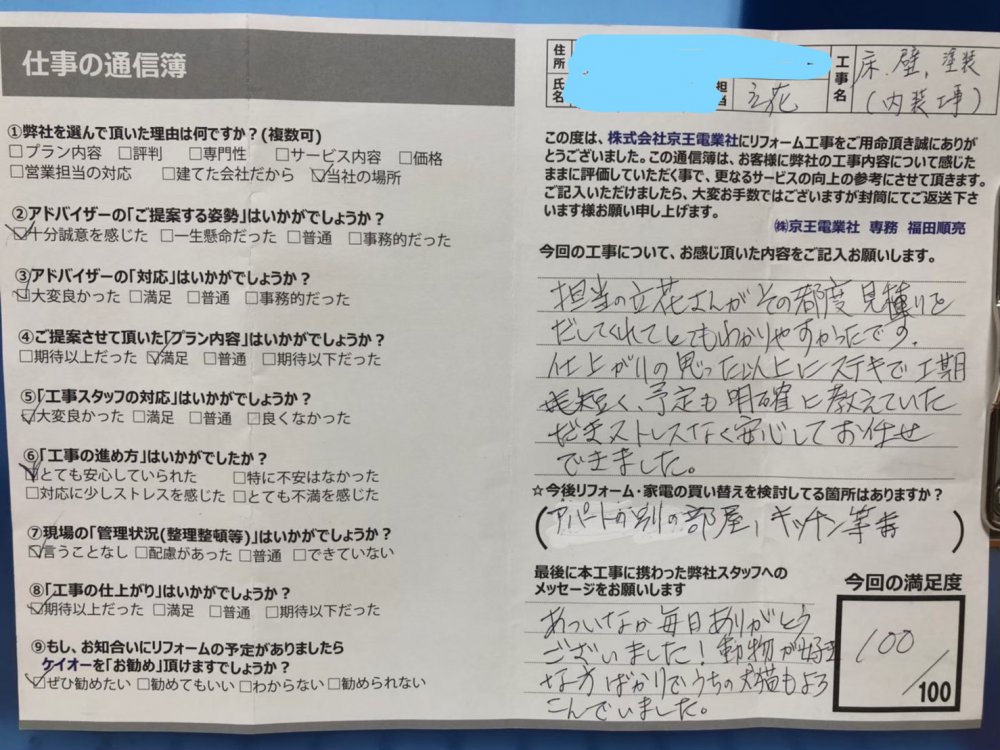 仕事の通信簿
①弊社を選んで頂いた理由は何ですか？(複数可)
□プラン内容 □評判 □専門性 □サービス内容 □価格
□営業担当の対応 □建てた会社だから ☑当社の場所
②アドバイザーの「ご提案する姿勢」はいかがでしょうか？
☑十分誠意を感じた □一生懸命だった □普通 □事務的だった
③アドバイザーの「対応」はいかがでしょうか？
☑大変良かった □満足 □普通 □事務的だった
④ご提案させて頂いた「プラン内容」はいかがでしょうか？
□期待以上だった ☑満足 □普通 □期待以下だった
⑤「工事スタッフの対応」はいかがでしょうか？
☑大変良かった □満足 □普通 □良くなかった
⑥「工事の進め方」はいかがでしたか？
☑とても安心していられた □特に不安はなかった
□対応に少しストレスを感じた □とても不満を感じた
⑦現場の「管理状況(整理整頓等)」はいかがでしょうか？
☑言うことなし □配慮があった □普通 □できていない
⑧「工事の仕上がり」はいかがでしょうか？
☑期待以上だった □満足 □普通 □期待以下だった
⑨もし、お知合いにリフォームの予定がありましたら
ケイオーを「お勧め」頂けますでしょうか？
☑ぜひ勧めたい □勧めてもいい □わからない □勧められない
住所
氏名
担当 立花
工事名 床、壁、塗装
(内装工事)
この度は、株式会社京王電業社にリフォーム工事をご用命頂き誠にありが
とうございました。この通信簿は、お客様に弊社の工事内容について感じた
ままに評価していただく事で、更なるサービスの向上の参考にさせて頂きます。
ご記入いただけましたら、大変お手数ではございますが封筒にてご返送下さ
います様お願い申し上げます。
㈱京王電業社 専務 福田順亮
今回の工事について、お感じ頂いた内容をご記入お願いします。
担当の立花さんがその都度見積りを
だしてくれてとてもわかりやすかったです。
仕上がりの思った以上にステキで工期
も短く、予定も明確に教えていた
だきストレスなく安心してお任せ
できました。
☆今後リフォーム・家電の買い替えを検討してる箇所はありますか？
(アパートの別の部屋、キッチン等)
最後に本工事に携わった弊社スタッフへの
メッセージをお願いします
あついなか毎日ありがとう
ございました！動物が好き
な方ばかりでうちの犬猫もよろ
こんでいました。
今回の満足度
100
/100